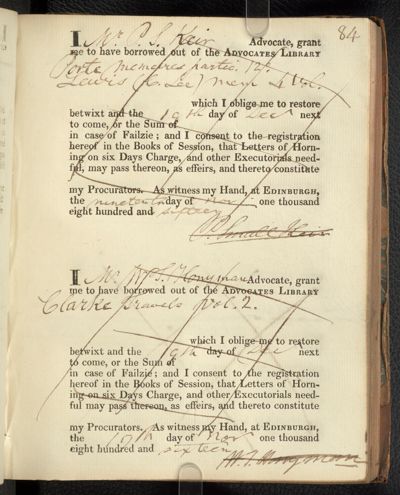 84
I Mr. P. S. Keir Advocate, grant
me to have borrowed out of the ADVOCATES LIBRARY
Porte memoires partie 12.
Lewis (Dr. Lee) mem 4 vol.
which I oblige me to restore
betwixt and the 19th day of Dec next
to come, or the Sum of
in case of Failzie; and I consent to the registration
hereof in the Books of Session, that Letters of Horn-
ing on six Days Charge, and other Executorials need-
ful, may pass thereon, as effeirs, and thereto constitute
my Procurators. As witness my Hand, at EDINBURGH,
the nineteenth day of Nov one thousand
eight hundred and sixteen
P. Small Keir
I Mr. W. S. Honyman Advocate, grant
me to have borrowed out of the ADVOCATES LIBRARY
Clarke travels Vol. 2.
which I oblige me to restore
betwixt and the 19th day of Dec next
to come, or the Sum of
in case of Failzie; and I consent to the registration
hereof in the Books of Session, that Letters of Horn-
ing on six Days Charge, and other Executorials need-
ful may pass thereon, as effeirs, and thereto constitute
my Procurators. As witness my Hand, at EDINBURGH,
the 19th day of Nov one thousand
eight hundred and sixteen